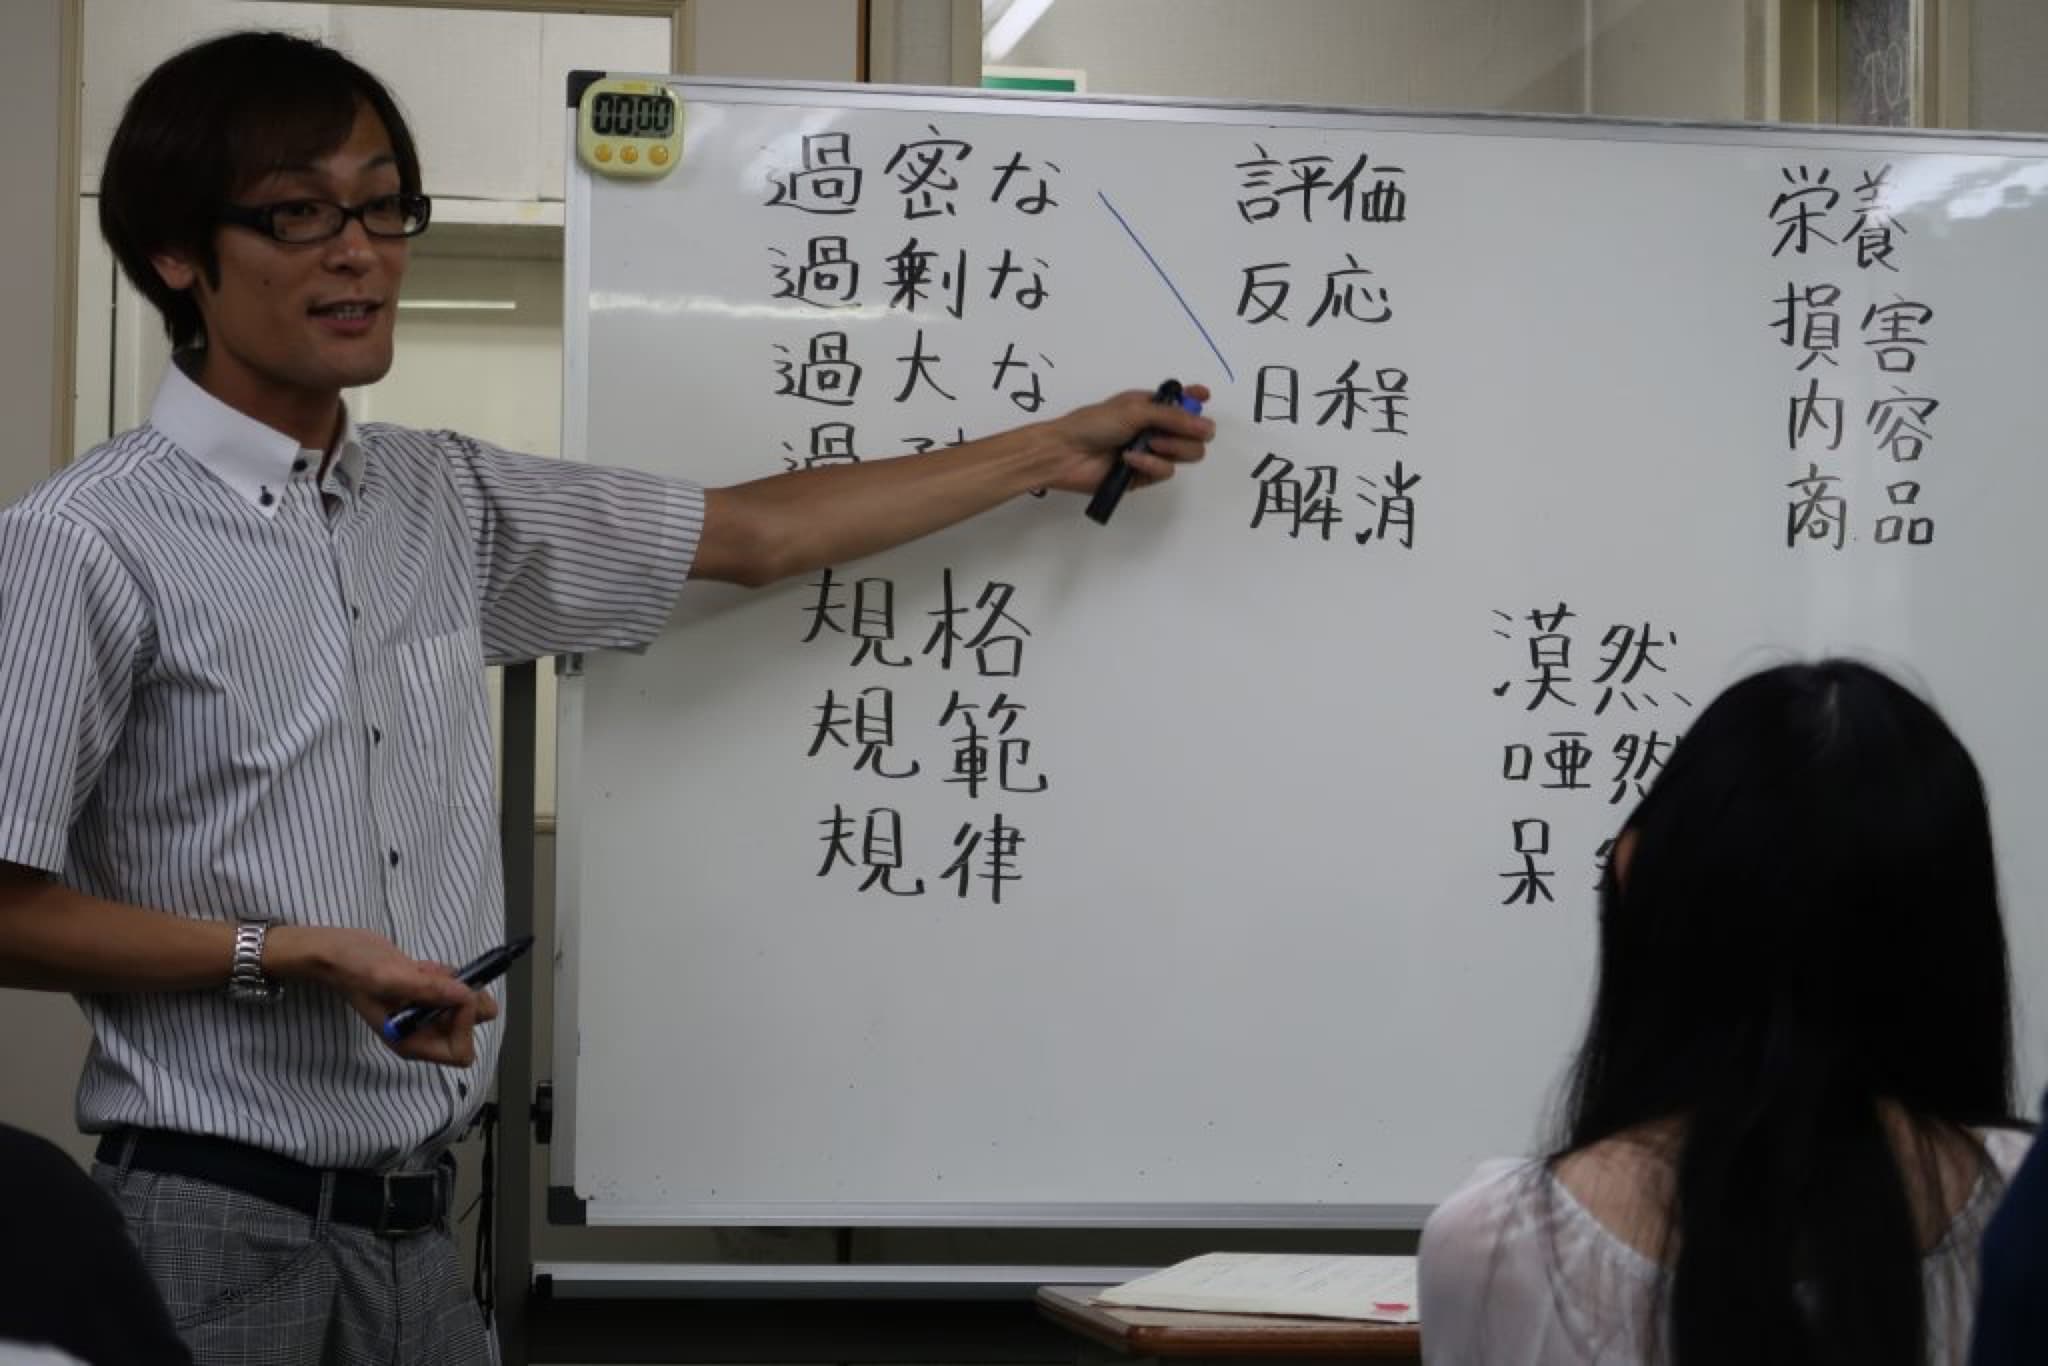 00:00
過密な
過剰な
過大な
過
評価
反応
日程
解消
栄養
損害
内容
商品
規格
規範
規律
漠然
唖然
呆